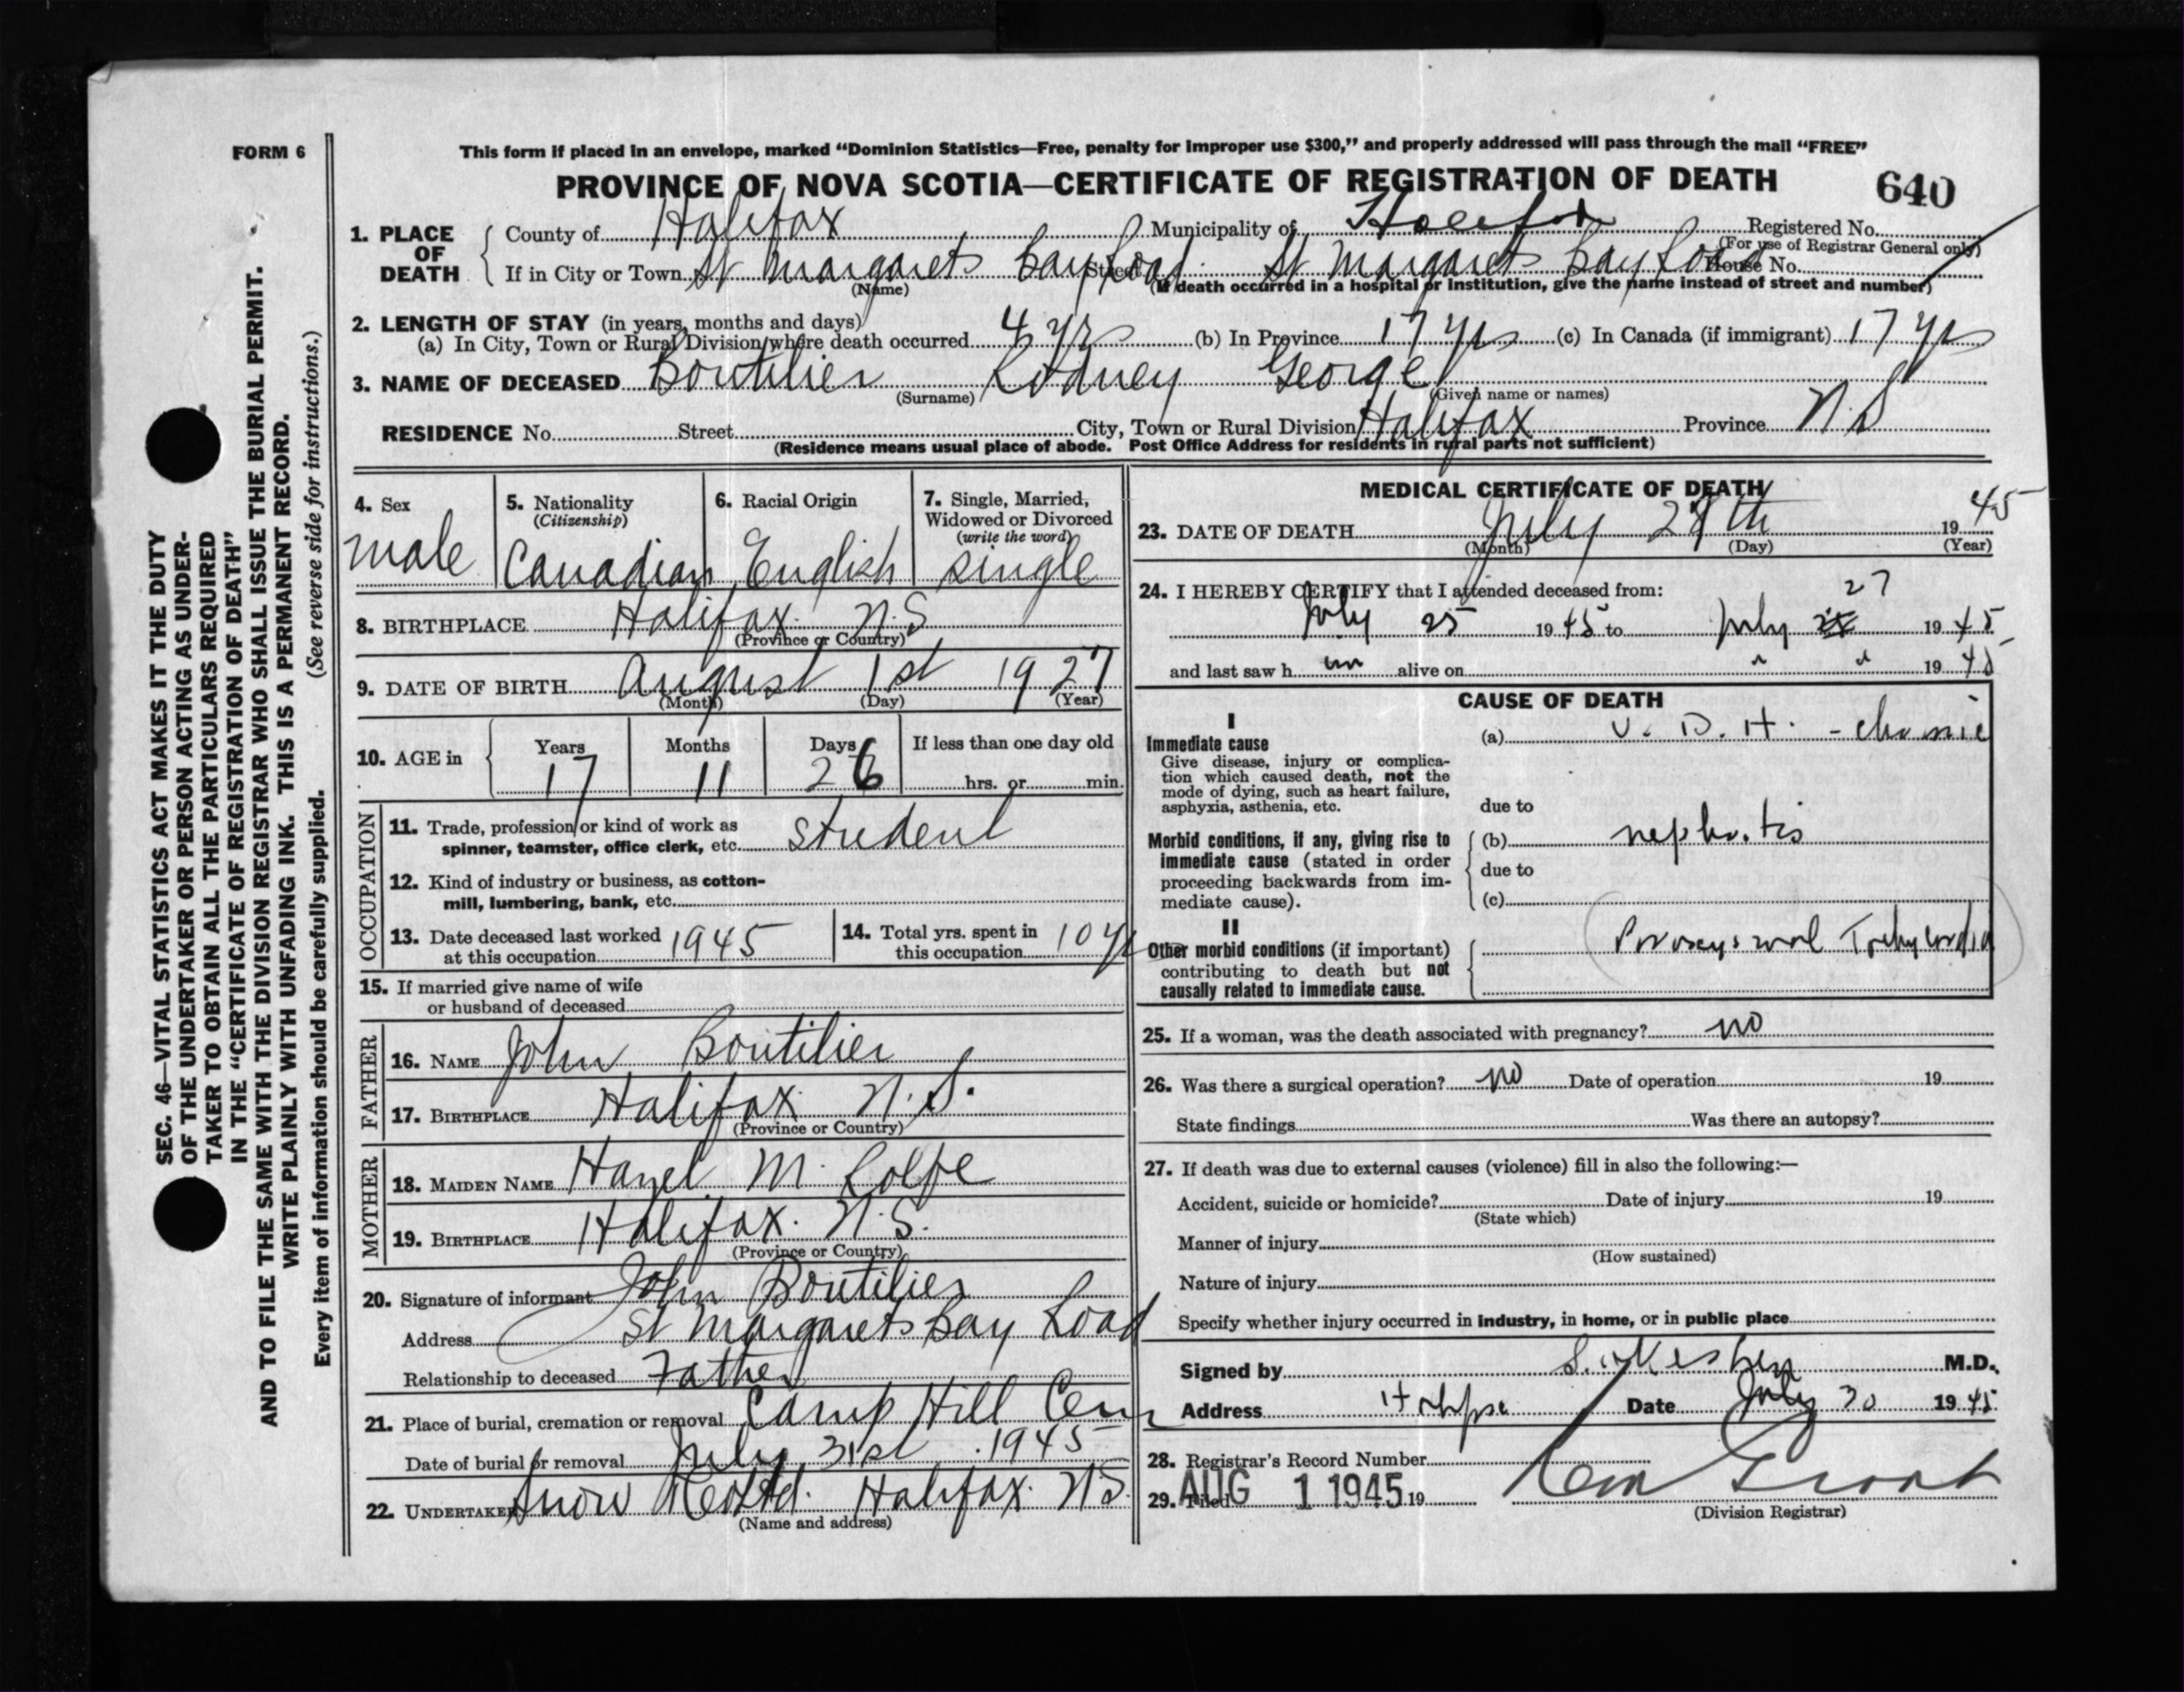 FORM 6
This form if placed in an envelope, marked “Dominion Statistics—Free, penalty for improper use $300,” and properly addressed will pass through the mail “FREE”
PROVINCE OF NOVA SCOTIA—CERTIFICATE OF REGISTRATION OF DEATH
640
1. PLACE OF DEATH
County of Halifax Municipality of Halifax Registered No.
(For use of Registrar General only)
If in City or Town St Margarets Bay Road Street St Margarets Bay Road House No.
(Name) (If death occurred in a hospital or institution, give the name instead of street and number)
2. LENGTH OF STAY (in years, months and days)
(a) In City, Town or Rural Division where death occurred 4 yrs (b) In Province 17 yrs (c) In Canada (if immigrant) 17 yrs
3. NAME OF DECEASED Boutilier Rodney George
(Surname) (Given name or names)
RESIDENCE No. Street City, Town or Rural Division Halifax Province N.S
(Residence means usual place of abode. Post Office Address for residents in rural parts not sufficient)
4. Sex
male
5. Nationality
(Citizenship)
Canadian
6. Racial Origin
English
7. Single, Married,
Widowed or Divorced
(write the word)
single
8. BIRTHPLACE Halifax. N.S
(Province or Country)
9. DATE OF BIRTH August 1st 1927
(Month) (Day) (Year)
10. AGE in
Years Months Days If less than one day old
17 11 26 hrs. or min.
OCCUPATION
11. Trade, profession or kind of work as
spinner, teamster, office clerk, etc. student
12. Kind of industry or business, as cotton-
mill, lumbering, bank, etc.
13. Date deceased last worked
at this occupation 1945
14. Total yrs. spent in
this occupation 10 yr
15. If married give name of wife
or husband of deceased
FATHER
16. NAME John Boutilier
17. BIRTHPLACE Halifax N.S.
(Province or Country)
MOTHER
18. MAIDEN NAME Hazel M. Rolfe
19. BIRTHPLACE Halifax. N.S.
(Province or Country)
20. Signature of informant John Boutilier
Address St Margarets Bay Road
Relationship to deceased Father
21. Place of burial, cremation or removal Camp Hill Cem
Date of burial or removal July 31st 1945
22. UNDERTAKER Snow & Co Ltd. Halifax. NS.
(Name and address)
MEDICAL CERTIFICATE OF DEATH
23. DATE OF DEATH July 28th 1945
(Month) (Day) (Year)
24. I HEREBY CERTIFY that I attended deceased from:
27
July 25 1945 to July 1945
and last saw him alive on " " 1945
CAUSE OF DEATH
I
Immediate cause
Give disease, injury or complica-
tion which caused death, not the
mode of dying, such as heart failure,
asphyxia, asthenia, etc.
(a) V. D. H. - chronic
due to
Morbid conditions, if any, giving rise to
immediate cause (stated in order
proceeding backwards from im-
mediate cause).
(b) nephritis
due to
(c)
II
Other morbid conditions (if important)
contributing to death but not
causally related to immediate cause.
Paroxysmal Tachycardia
25. If a woman, was the death associated with pregnancy? no
26. Was there a surgical operation? no Date of operation 19
State findings Was there an autopsy?
27. If death was due to external causes (violence) fill in also the following:—
Accident, suicide or homicide? Date of injury 19
(State which)
Manner of injury
(How sustained)
Nature of injury
Specify whether injury occurred in industry, in home, or in public place
Signed by M.D.
Address Date July 30 1945
28. Registrar's Record Number
29. Filed AUG 1 1945 19
(Division Registrar)
SEC. 46—VITAL STATISTICS ACT MAKES IT THE DUTY
OF THE UNDERTAKER OR PERSON ACTING AS UNDER-
TAKER TO OBTAIN ALL THE PARTICULARS REQUIRED
IN THE “CERTIFICATE OF REGISTRATION OF DEATH”
AND TO FILE THE SAME WITH THE DIVISION REGISTRAR WHO SHALL ISSUE THE BURIAL PERMIT.
WRITE PLAINLY WITH UNFADING INK. THIS IS A PERMANENT RECORD.
Every item of information should be carefully supplied. (See reverse side for instructions.)